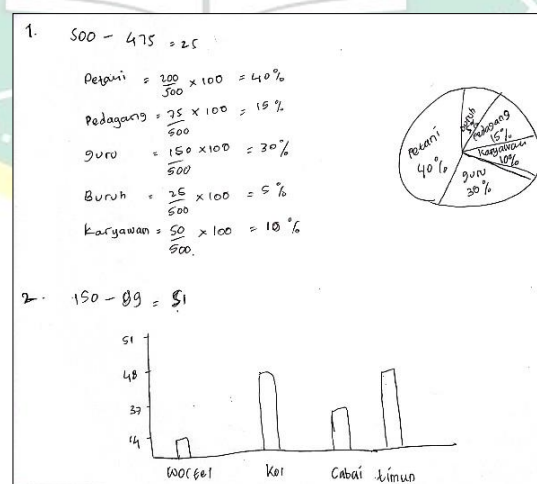 1. 500 - 475 = 25
Petani = 200/500 x 100 = 40%
Pedagang = 75/500 x 100 = 15%
guru = 150/500 x 100 = 30%
Buruh = 25/500 x 100 = 5%
Karyawan = 50/500 x 100 = 10%
Buruh 5%
Pedagang 15%
Karyawan 10%
guru 30%
Petani 40%
2. 150 - 99 = 51
51
48
37
14
Wortel Kol Cabai timun